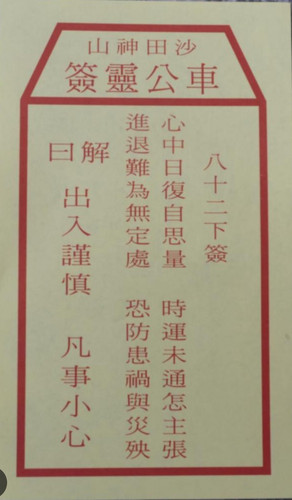 沙田神山
車公靈簽
八十二下簽
心中日復自思量　時運未通怎主張
進退難為無定處　恐防患禍與災殃
解曰　出入謹慎　凡事小心